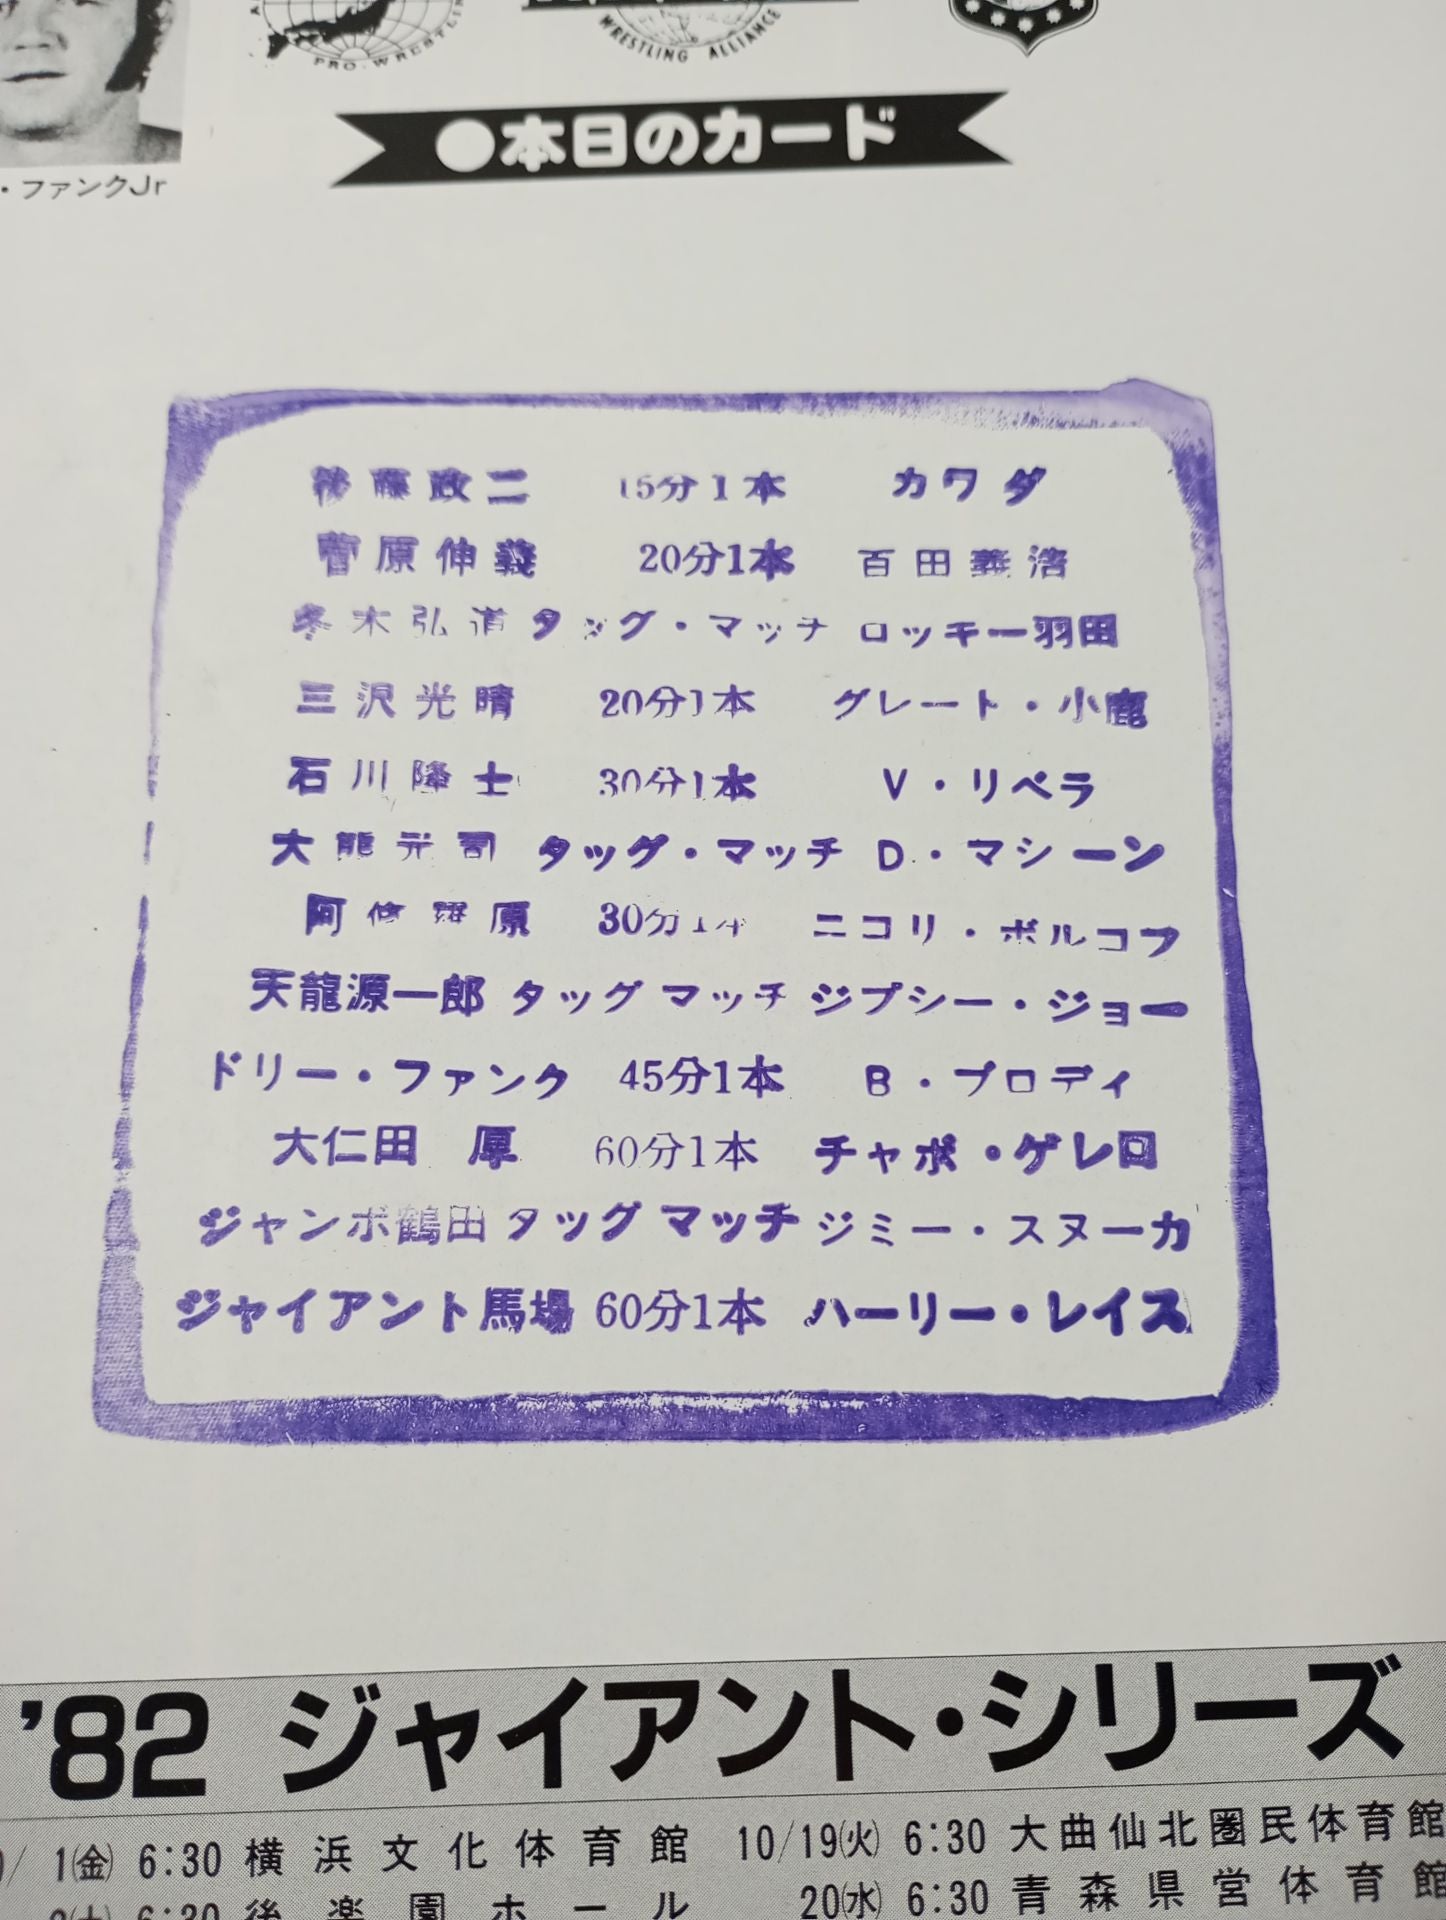 PRO. WRESTLIN
WRESTLING ALLIANCE
・ファンクJr
●本日のカード
後藤政二 15分1本 カワダ
菅原伸義 20分1本 百田義浩
冬木弘道 タッグ・マッチ ロッキー羽田
三沢光晴 20分1本 グレート・小鹿
石川隆士 30分1本 V・リベラ
大熊元司 タッグ・マッチ D・マシーン
阿修羅原 30分1本 ニコリ・ボルコフ
天龍源一郎 タッグ マッチ ジプシー・ジョー
ドリー・ファンク 45分1本 B・ブロディ
大仁田 厚 60分1本 チャボ・ゲレロ
ジャンボ鶴田 タッグ マッチ ジミー・スヌーカ
ジャイアント馬場 60分1本 ハーリー・レイス
'82 ジャイアント・シリーズ
/ 1㈮ 6:30 横浜文化体育館 10/19㈫ 6:30 大曲仙北圏民体育館
2㈯ 6:30 後楽園ホール 20㈬ 6:30 青森県営体育館